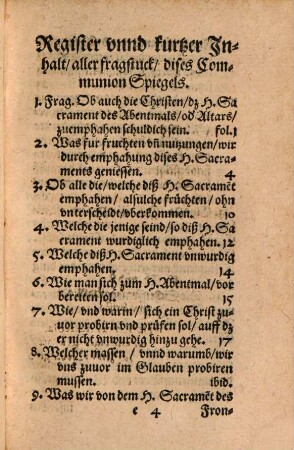 Register vnnd kurtzer In-
halt/ aller fragstuck/ dises Com-
munion Spiegels.
1. Frag. Ob auch die Christen/ dz H. Sa
crament des Abentmals/ od Altars/
zuemphahen schuldich sein. fol. 1
2. Was fur fruchten vñ nutzungen/ wir
durch emphahung dises H. Sacra-
ments geniessen. 4
3. Ob alle die/ welche diß H. Sacramẽt
emphahen/ alsulche früchten/ ohn
vnterscheidt/ vberkommen. 10
4. Welche die jenige seind/ so diß H. Sa
crament wurdiglich emphahen. 12
5. Welche diß H. Sacrament vnwurdig
emphahen. 14
6. Wie man sich zum H. Abentmal/ vor
bereiten sol. 15
7. Wie/ vnd warin/ sich ein Christ zu-
uor probirn vnd prüfen sol/ auff dz
er nicht vnwurdig hinzu gehe. 17
8. Welcher massen/ vnnd warumb/ wir
vns zuuor im Glauben probiren
mussen. ibid.
9. Was wir von dem H. Sacramẽt des
e 4 Fron-